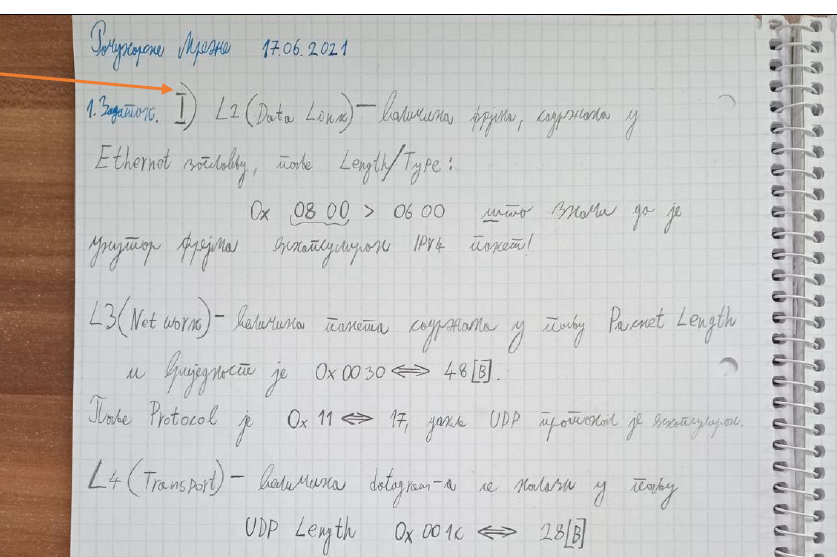 Рачунарске Мреже 17.06.2021
1. Задатак. I) L2 (Data Link) – величина фрејма, садржана у
Ethernet заглављу, поље Length/Type:
0x 08 00 > 06 00 што значи да је
унутар фрејма енкапсулиран IPv4 пакет!
L3 (Network) – величина пакета садржана у пољу Packet Length
и вриједност је 0x0030 ⟺ 48[B].
Поље Protocol је 0x 11 ⟺ 17, дакле UDP протокол је енкапсулиран.
L4 (Transport) – величина datagram-а се налази у пољу
UDP Length 0x 001C ⟺ 28[B]